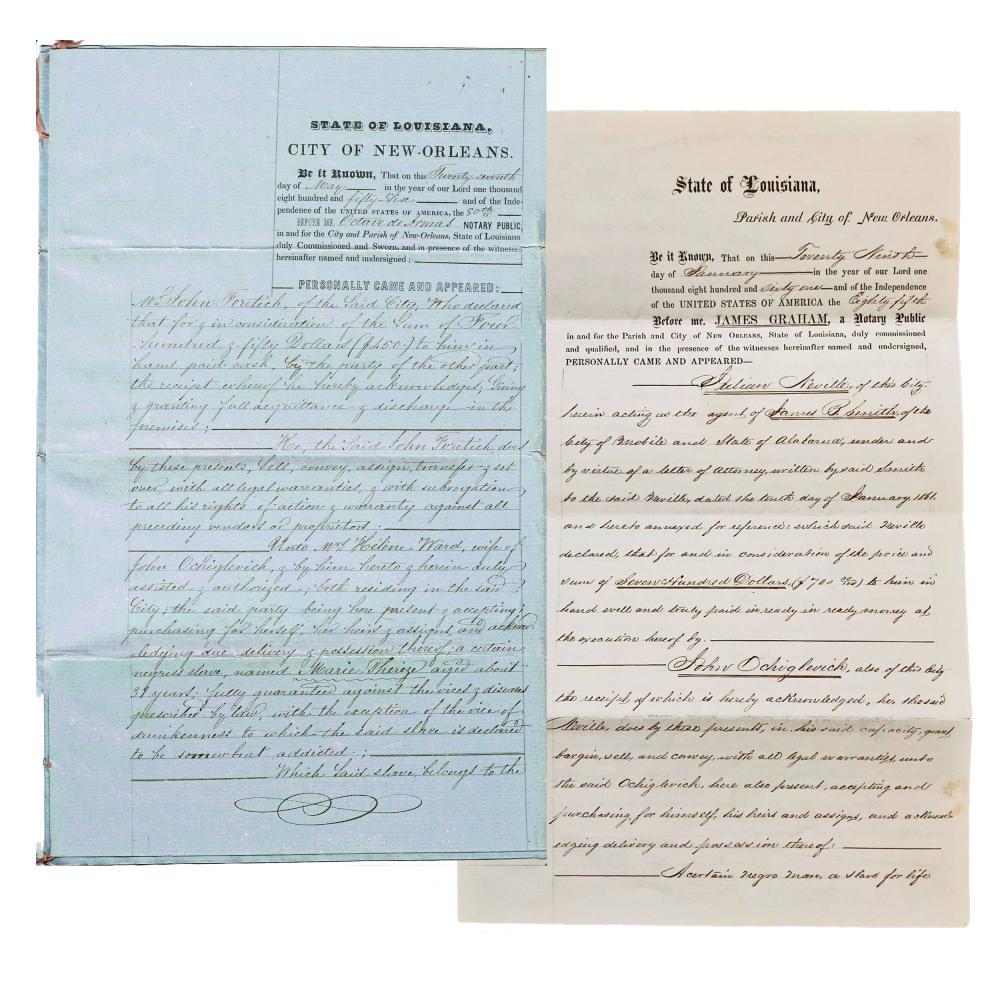 STATE OF LOUISIANA,
CITY OF NEW-ORLEANS.
Be it Known, That on this Twenty seventh
day of May in the year of our Lord one thousand
eight hundred and fifty-Six and of the Inde-
pendence of the UNITED STATES OF AMERICA, the 80th
BEFORE ME, Octave de Armas NOTARY PUBLIC,
in and for the City and Parish of New-Orleans, State of Louisiana
duly Commissioned and Sworn, and in presence of the witnesses
hereinafter named and undersigned:
PERSONALLY CAME AND APPEARED:
Mr. John Foretich, of the said City, Who declared
that for & in consideration of the Sum of Four
hundred & fifty Dollars ($450) to him in
hand paid cash, by the party of the other part;
the receipt whereof he hereby acknowledges, Giving
& granting full acquittance & discharge in the
premises;
He, the Said John Foretich, does
by these presents, Sell, convey, assign, transfer & set
over, with all legal warranties, & with subrogation
to all his rights of action & warranty against all
preceding vendors or proprietors.
Unto Mrs Hélène Ward, wife of
John Ochiglevich, & by him hereto & herein duly
assisted & authorized; both residing in the said
City; the said party being here present & accepting;
purchasing for herself, her heirs & assigns, and acknow-
ledging due delivery & possession thereof; a certain
negress slave, named Marie Thereze aged about
38 years; fully guaranteed against the vices & diseases
prescribed by law, with the exception of the vice of
drunkenness to which the said slave is declared
to be somewhat addicted;
Which Said slave belongs to the
State of Louisiana,
Parish and City of New Orleans.
Be it Known, That on this Twenty Ninth
day of January in the year of our Lord one
thousand eight hundred and sixty one and of the Independence
of the UNITED STATES OF AMERICA the Eighty fifth
Before me, JAMES GRAHAM, a Notary Public
in and for the Parish and City of NEW ORLEANS, State of Louisiana, duly commissioned
and qualified, and in the presence of the witnesses hereinafter named and undersigned,
PERSONALLY CAME AND APPEARED—
Julian Neville, of this City,
herein acting as the agent of James P. Smith, of the
City of Mobile and State of Alabama, under and
by virtue of a letter of Attorney, written by said Smith
to the said Neville, dated the tenth day of January 1861
and hereto annexed for reference: which said Neville
declared, that for and in consideration of the price and
sum of Seven Hundred Dollars, ($700) to him in
hand well and truly paid in ready in ready money at
the execution hereof by.
John Ochiglevich, also of this City
the receipt of which is hereby acknowledged, he, the said
Neville, does by these presents, in his said capacity, grant
bargain, sell, and convey, with all legal warranties unto
the said Ochiglevich, here also present, accepting and
purchasing for himself, his heirs and assigns, and acknowl-
edging delivery and possession thereof:
A certain Negro man, a slave for life